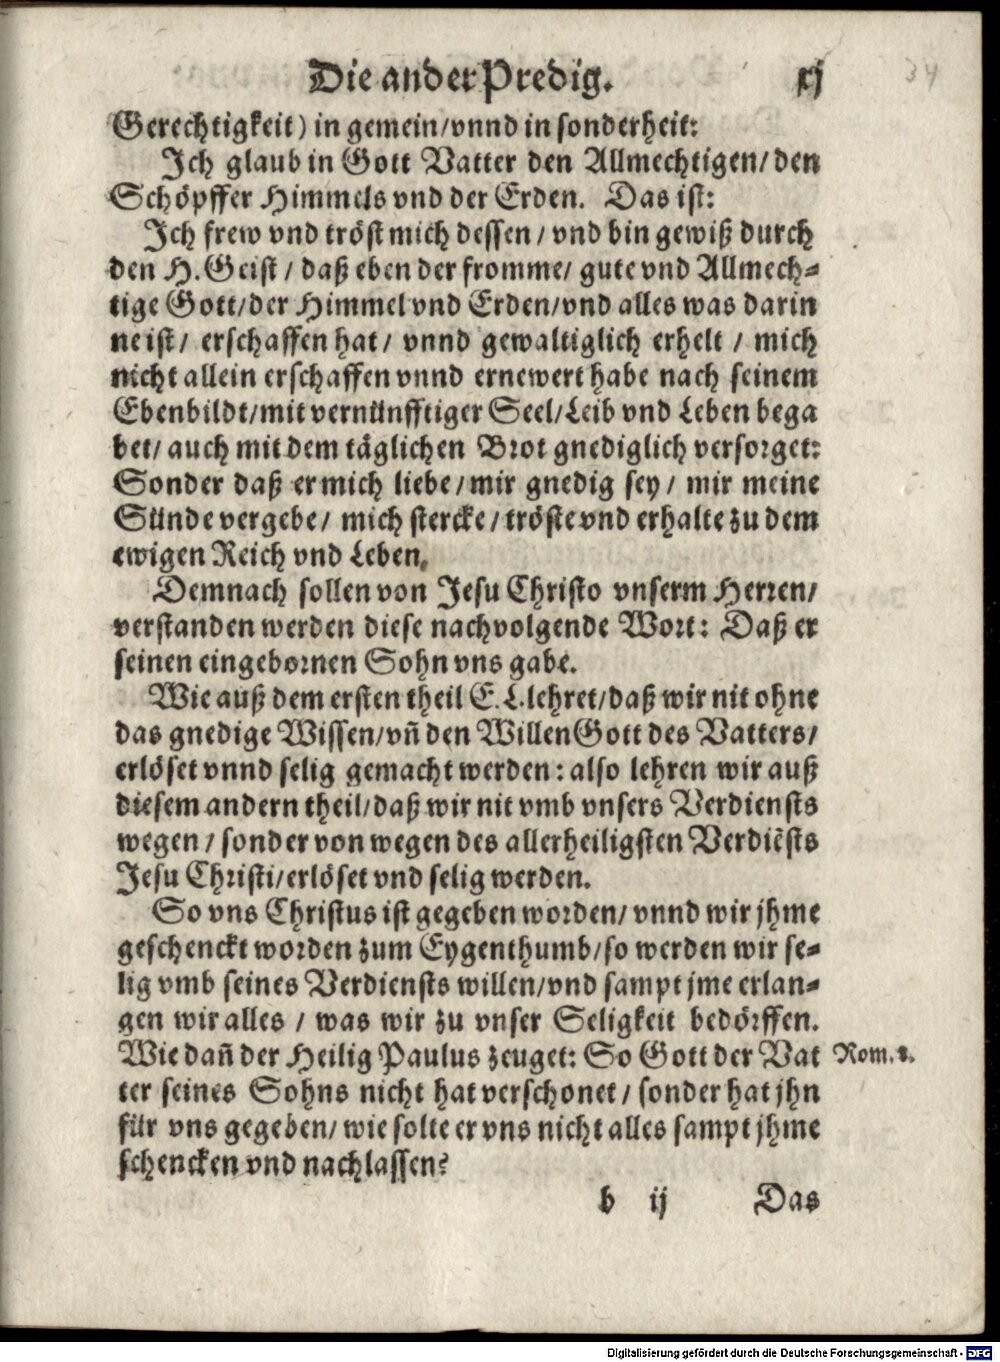 Die ander Predig. xj
34
Gerechtigkeit) in gemein/vnnd in sonderheit:
Ich glaub in Gott Vatter den Allmechtigen/den
Schöpffer Himmels vnd der Erden. Das ist:
Ich frew vnd tröst mich dessen/vnd bin gewiß durch
den H. Geist/daß eben der fromme/gute vnd Allmech-
tige Gott/der Himmel vnd Erden/vnd alles was darin
ne ist/erschaffen hat/vnnd gewaltiglich erhelt/mich
nicht allein erschaffen vnnd ernewert habe nach seinem
Ebenbildt/mit vernünfftiger Seel/Leib vnd Leben bega
bet/auch mit dem täglichen Brot gnediglich versorget:
Sonder daß er mich liebe/mir gnedig sey/mir meine
Sünde vergebe/mich stercke/tröste vnd erhalte zu dem
ewigen Reich vnd Leben.
Demnach sollen von Jesu Christo vnserm Herren/
verstanden werden diese nachvolgende Wort: Daß er
seinen eingebornen Sohn vns gabe.
Wie auß dem ersten theil E. L. lehret/daß wir nit ohne
das gnedige Wissen/vñ den Willen Gott des Vatters/
erlöset vnnd selig gemacht werden: also lehren wir auß
diesem andern theil/daß wir nit vmb vnsers Verdiensts
wegen/sonder von wegen des allerheiligsten Verdiẽsts
Jesu Christi/erlöset vnd selig werden.
So vns Christus ist gegeben worden/vnnd wir jhme
geschenckt worden zum Eygenthumb/so werden wir se-
lig vmb seines Verdiensts willen/vnd sampt jme erlan-
gen wir alles/was wir zu vnser Seligkeit bedörffen.
Wie dañ der Heilig Paulus zeuget: So Gott der Vat Rom. 8.
ter seines Sohns nicht hat verschonet/sonder hat jhn
für vns gegeben/wie solte er vns nicht alles sampt jhme
schencken vnd nachlassen?
b ij Das
Digitalisierung gefördert durch die Deutsche Forschungsgemeinschaft - DFG